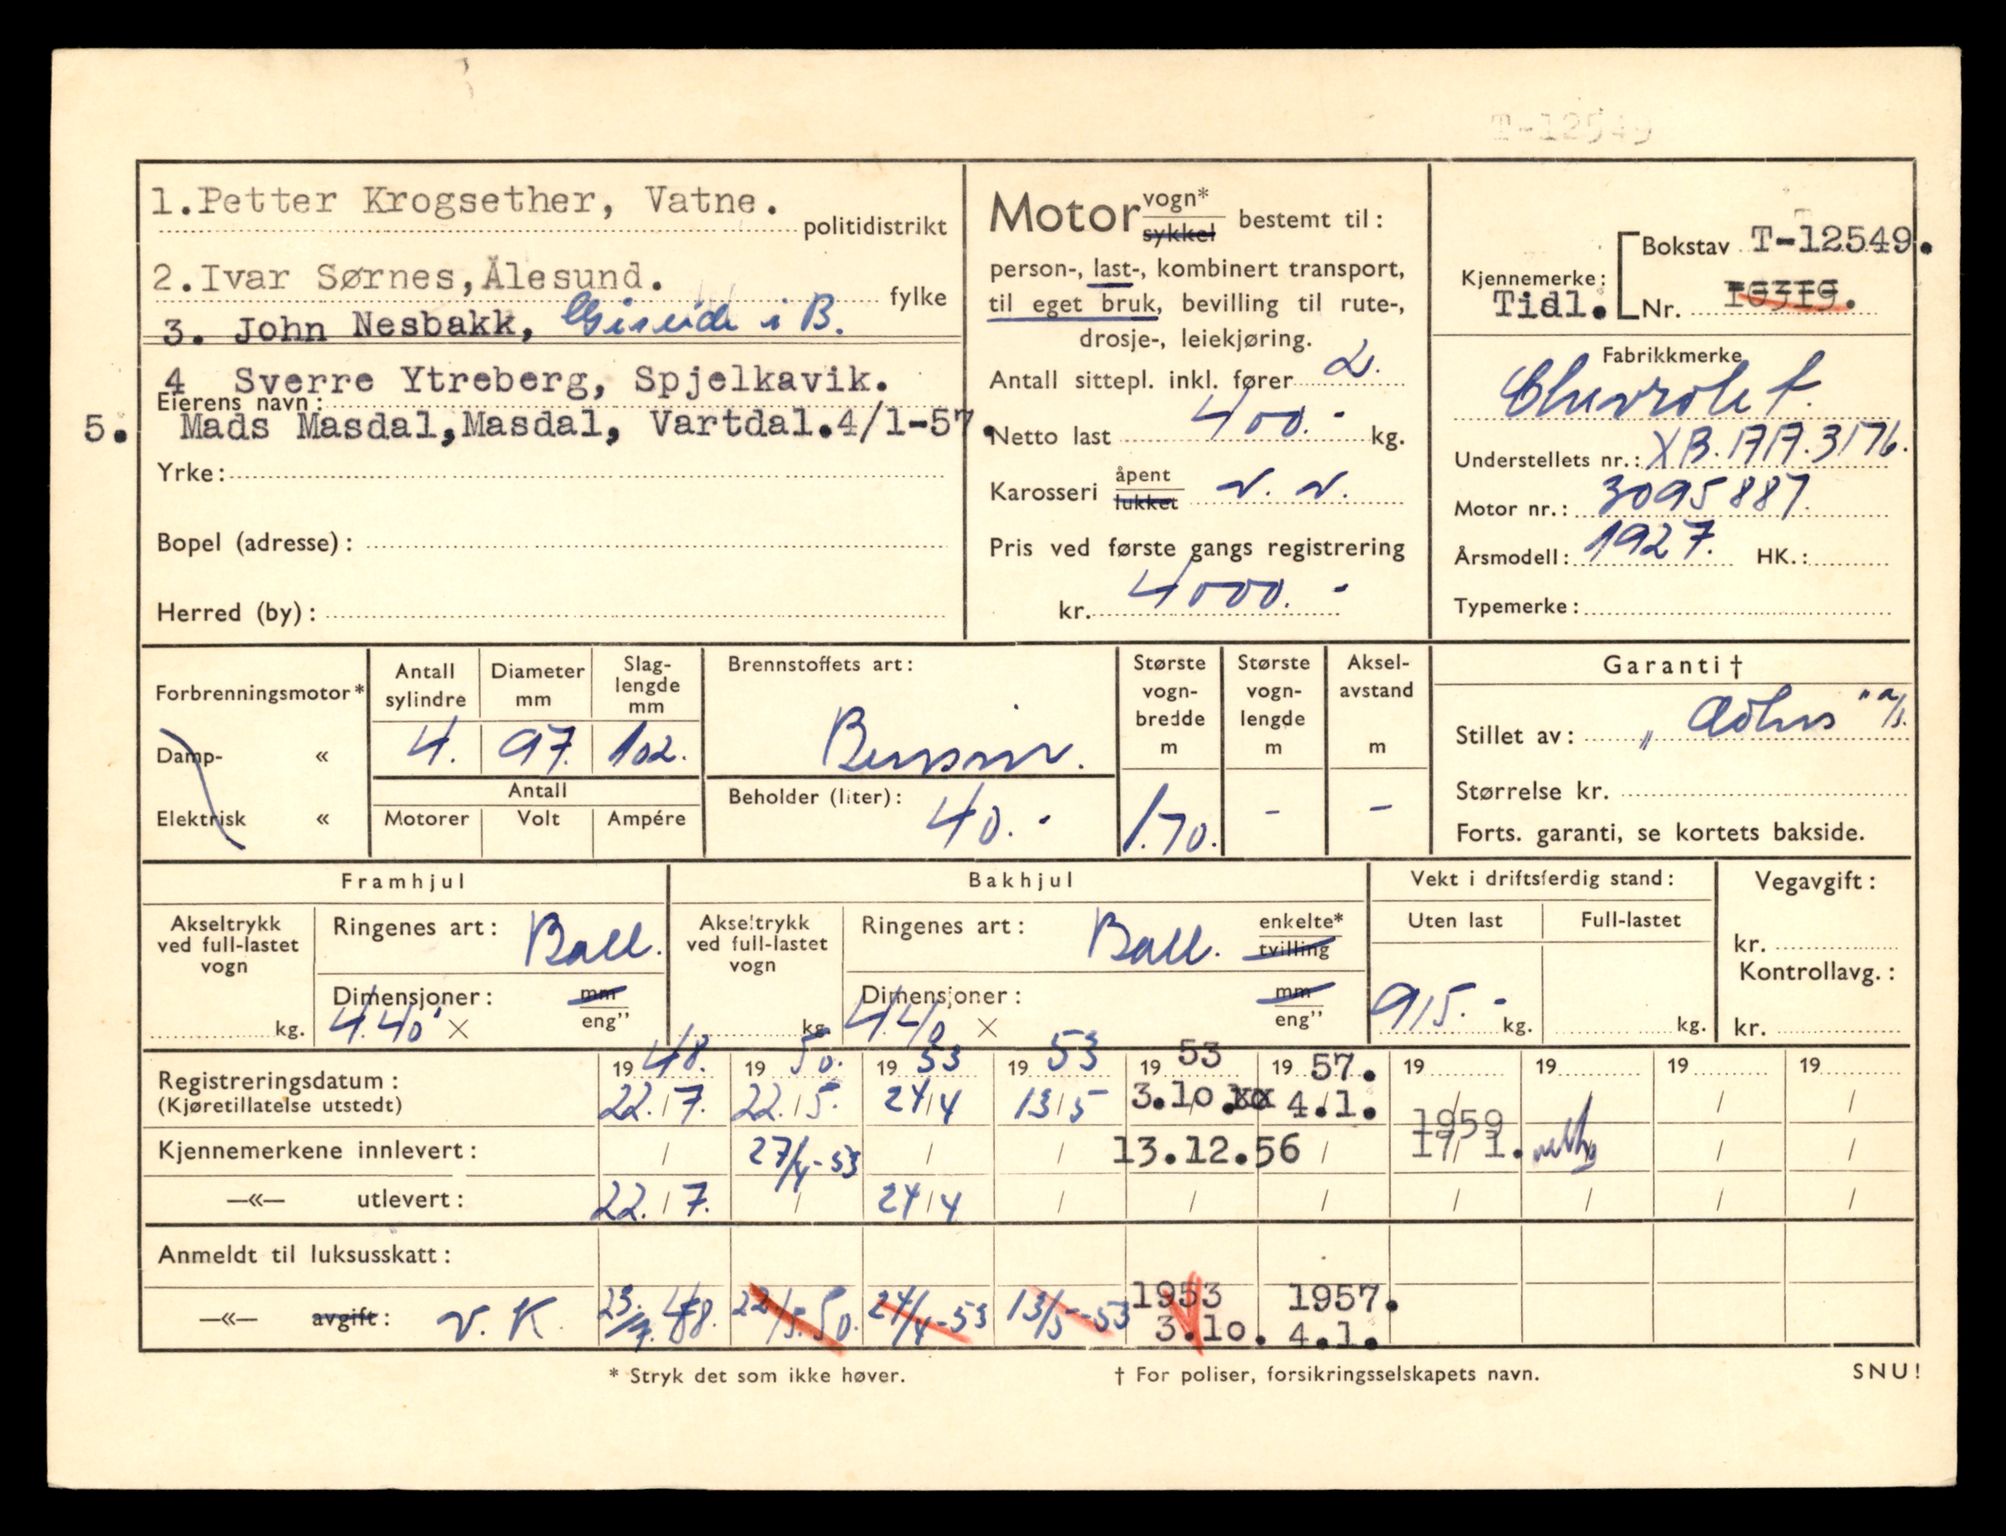 T-12549
1.Petter Krogsether, Vatne.
politidistrikt
2.Ivar Sørnes,Ålesund.
fylke
3. John Nesbakk, i B.
4 Sverre Ytreberg, Spjelkavik.
Eierens navn:
5. Mads Masdal,Masdal, Vartdal.4/1-57.
Yrke:
Bopel (adresse):
Herred (by):
Motor vogn* sykkel bestemt til:
person-, last-, kombinert transport,
til eget bruk, bevilling til rute-,
drosje-, leiekjøring.
Antall sittepl. inkl. fører 2.
Netto last 400.- kg.
Karosseri åpent lukket v. v.
Pris ved første gangs registrering
kr. 4000.-
Kjennemerke: Bokstav T-12549.
Tidl. Nr. 10319.
Fabrikkmerke
Chevrolet.
Understellets nr.: XB.1717.3176.
Motor nr.: 3095887.
Årsmodell: 1927. HK.:
Typemerke:
Forbrenningsmotor*
Damp- «
Elektrisk «
Antall sylindre 4.
Diameter mm 97.
Slag-lengde mm 102.
Antall
Motorer Volt Ampére
Brennstoffets art: Bensin.
Beholder (liter): 40.-
Største vogn-bredde m 1.70.
Største vogn-lengde m -
Aksel-avstand m -
Garanti†
Stillet av: „ "a/s.
Størrelse kr.
Forts. garanti, se kortets bakside.
Framhjul
Akseltrykk ved full-lastet vogn kg.
Ringenes art: Ball.
Dimensjoner: mm eng"
4.40" ×
Bakhjul
Akseltrykk ved full-lastet vogn kg.
Ringenes art: Ball. enkelte* tvilling
Dimensjoner: mm eng"
4.40 ×
Vekt i driftsferdig stand:
Uten last Full-lastet
915.- kg. kg.
Vegavgift:
kr.
Kontrollavg.:
kr.
19 48. 19 50. 19 53 19 53 19 53 19 57. 19 19 19 19
Registreringsdatum: 22./7. 22./5. 24/4 13/5 3.10.xx 4.1. / / / /
(Kjøretillatelse utstedt)
1959
Kjennemerkene innlevert: / 27/4-53 / / 13.12.56 / 17/1. / /
—«— utlevert: 22./7. / 24/4 / / / / / / /
Anmeldt til luksusskatt:
—«— avgift: v. K. 23./7.48. 22/5.50. 24/4-53 13/5-53 1953 3.10. 1957. 4.1.
* Stryk det som ikke høver.
† For poliser, forsikringsselskapets navn.
SNU!